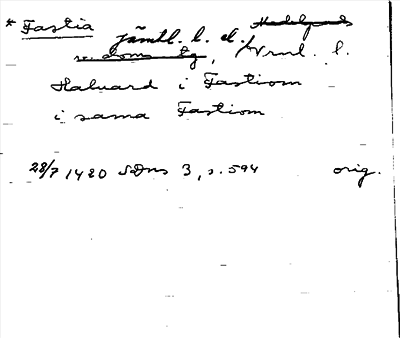 * Fastia Jämtl. l. el. Medelpads
v. doms tg, Vrml. l.
Haluard i Fastiom
i sama Fastiom
28/7 1420 SDns 3, s. 594 orig.